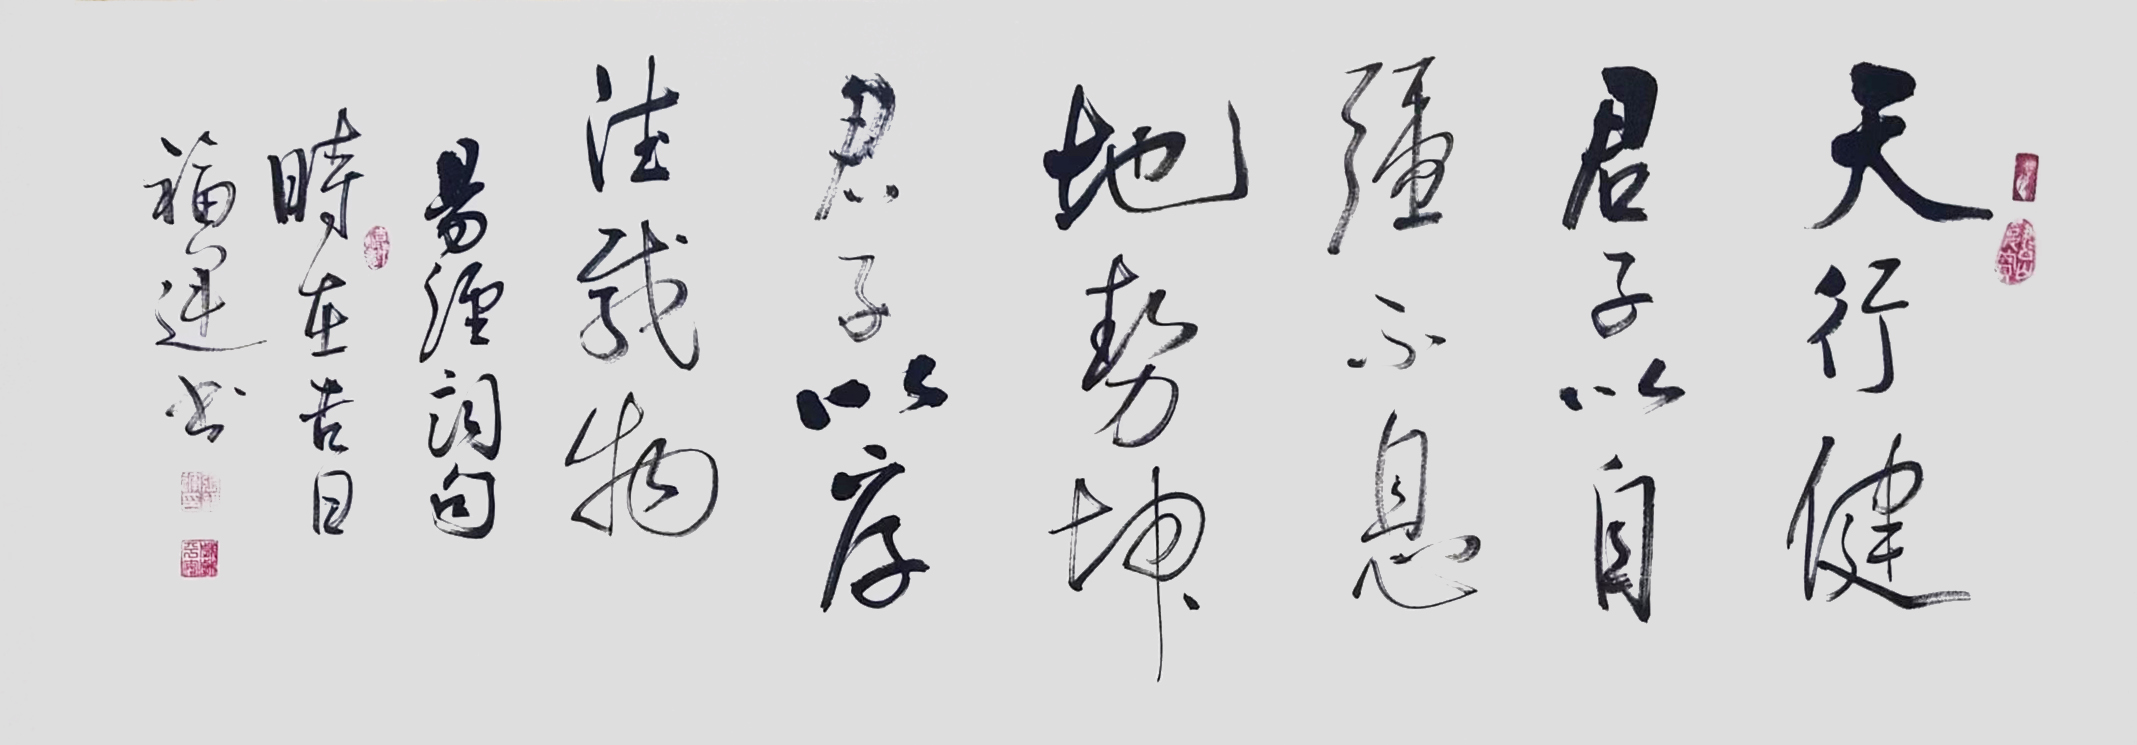 天行健
君子以自
彊不息
地勢坤
君子以厚
德載物
易經詞句
時在吉日
福運书